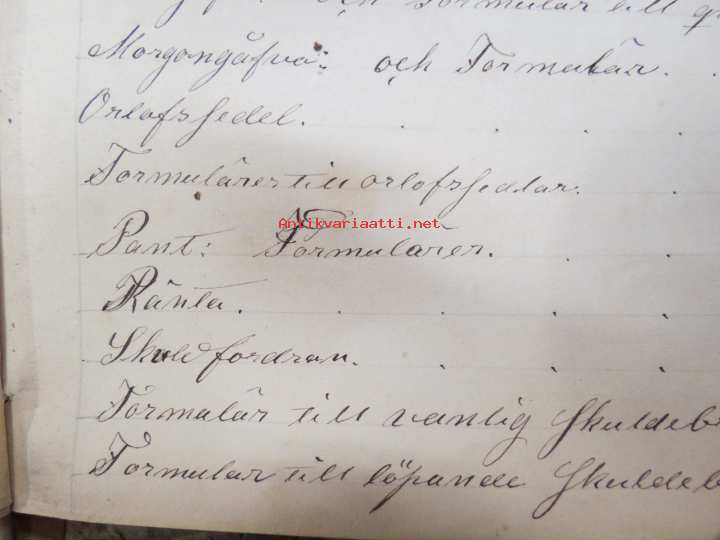 och Formulär till
Morgongåfva: och Formulär.
Orlofssedel.
Formulärer till orlofssedlar.
Antikvariaatti.net
Pant: Formulärer.
Ränta.
Skuldfordran.
Formulär till vanlig Skuldeb
Formulär till löpande Skuldeb